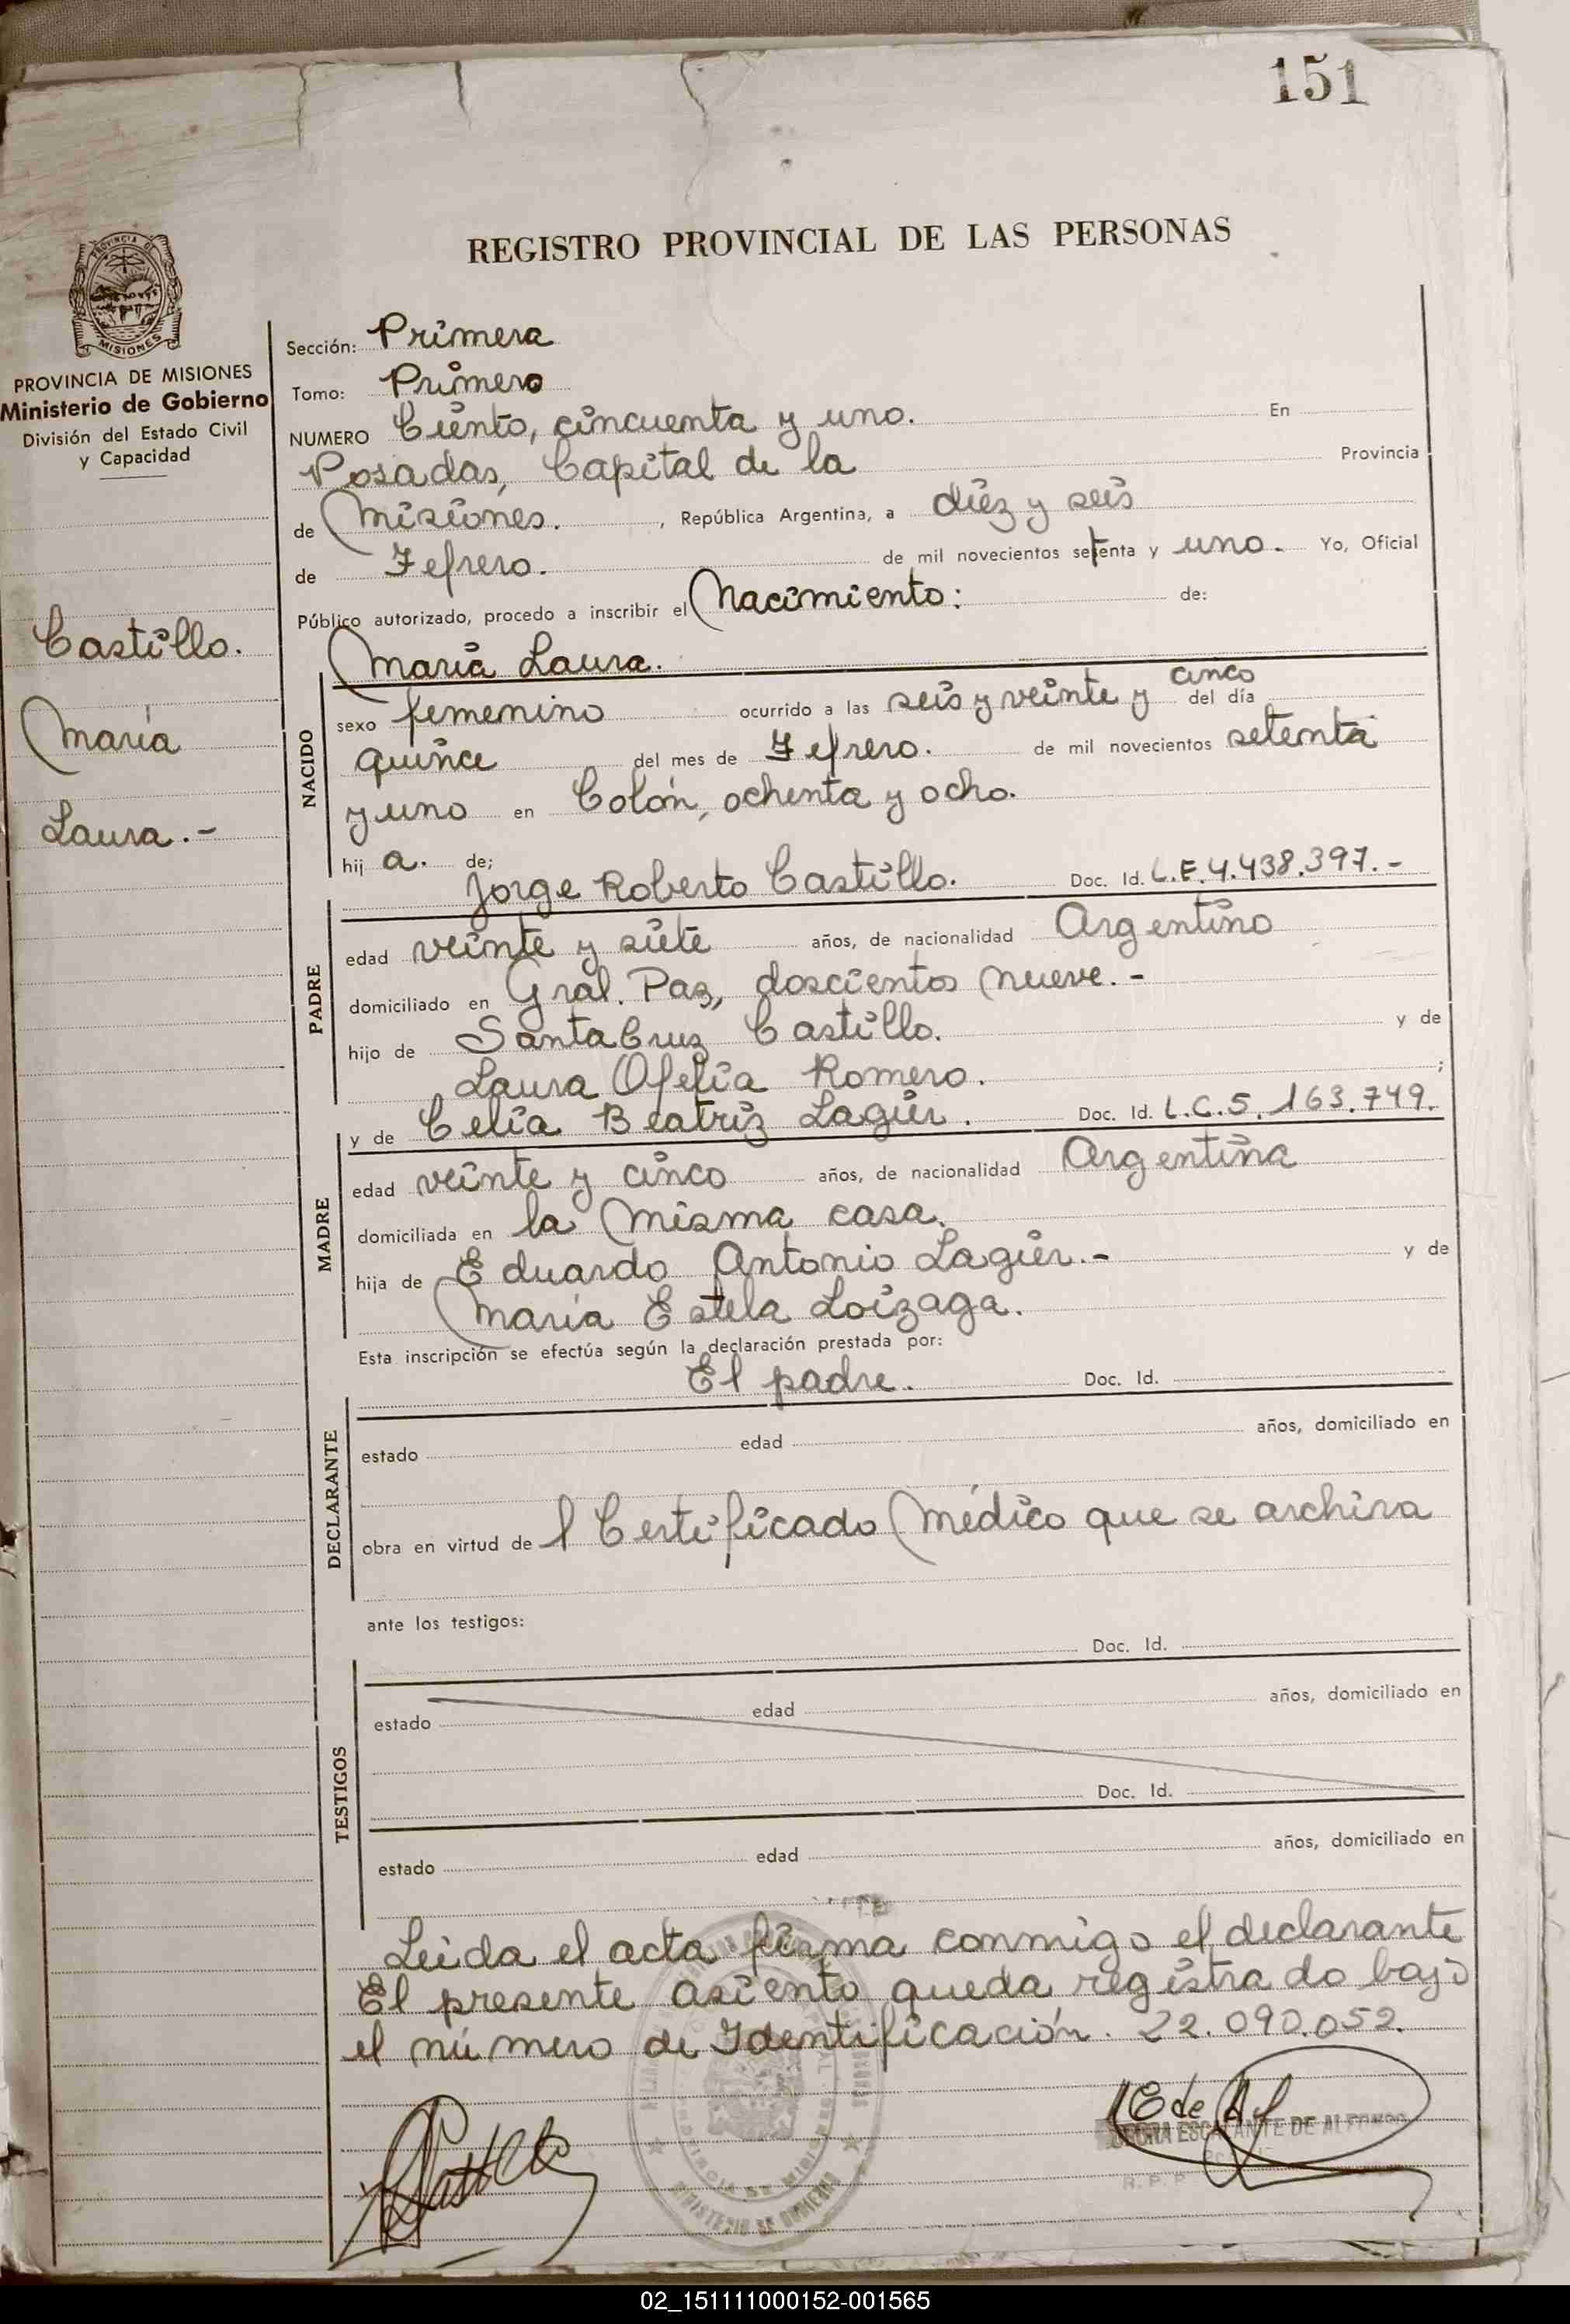 151
REGISTRO PROVINCIAL DE LAS PERSONAS
PROVINCIA DE
MISIONES
PROVINCIA DE MISIONES
Ministerio de Gobierno
División del Estado Civil
y Capacidad
Castillo.
María
Laura.-
Sección: Primera
Tomo: Primero
NUMERO Ciento, cincuenta y uno. En
Posadas, Capital de la Provincia
de Misiones. , República Argentina, a diez y seis
de Febrero. de mil novecientos setenta y uno. Yo, Oficial
Público autorizado, procedo a inscribir el Nacimiento: de:
María Laura.
NACIDO
sexo femenino ocurrido a las seis y veinte y cinco del día
quince del mes de Febrero. de mil novecientos setenta
y uno en Colón, ochenta y ocho.
hij a. de;
Jorge Roberto Castillo. Doc. Id. L.E. 4.438.397.-
PADRE
edad veinte y siete años, de nacionalidad Argentino
domiciliado en Gral. Paz, doscientos nueve.-
hijo de Santa Cruz Castillo. y de
Laura Ofelia Romero. ;
y de Celia Beatriz Lagier. Doc. Id. L.C. 5.163.749.
MADRE
edad veinte y cinco años, de nacionalidad Argentina
domiciliada en la misma casa.
hija de Eduardo Antonio Lagier.- y de
María Estela Loizaga.
Esta inscripción se efectúa según la declaración prestada por:
El padre. Doc. Id.
DECLARANTE
estado edad años, domiciliado en
obra en virtud de l Certificado Médico que se archiva
ante los testigos:
Doc. Id.
TESTIGOS
estado edad años, domiciliado en
Doc. Id.
estado edad años, domiciliado en
Leida el acta firma conmigo el declarante
El presente asiento queda registrado bajo
el número de Identificación. 22.090.052.
ESCALANTE DE ALFONSO
R. P. P.
MINISTERIO DE GOBIERNO
PROVINCIA DE MISIONES
02_151111000152-001565